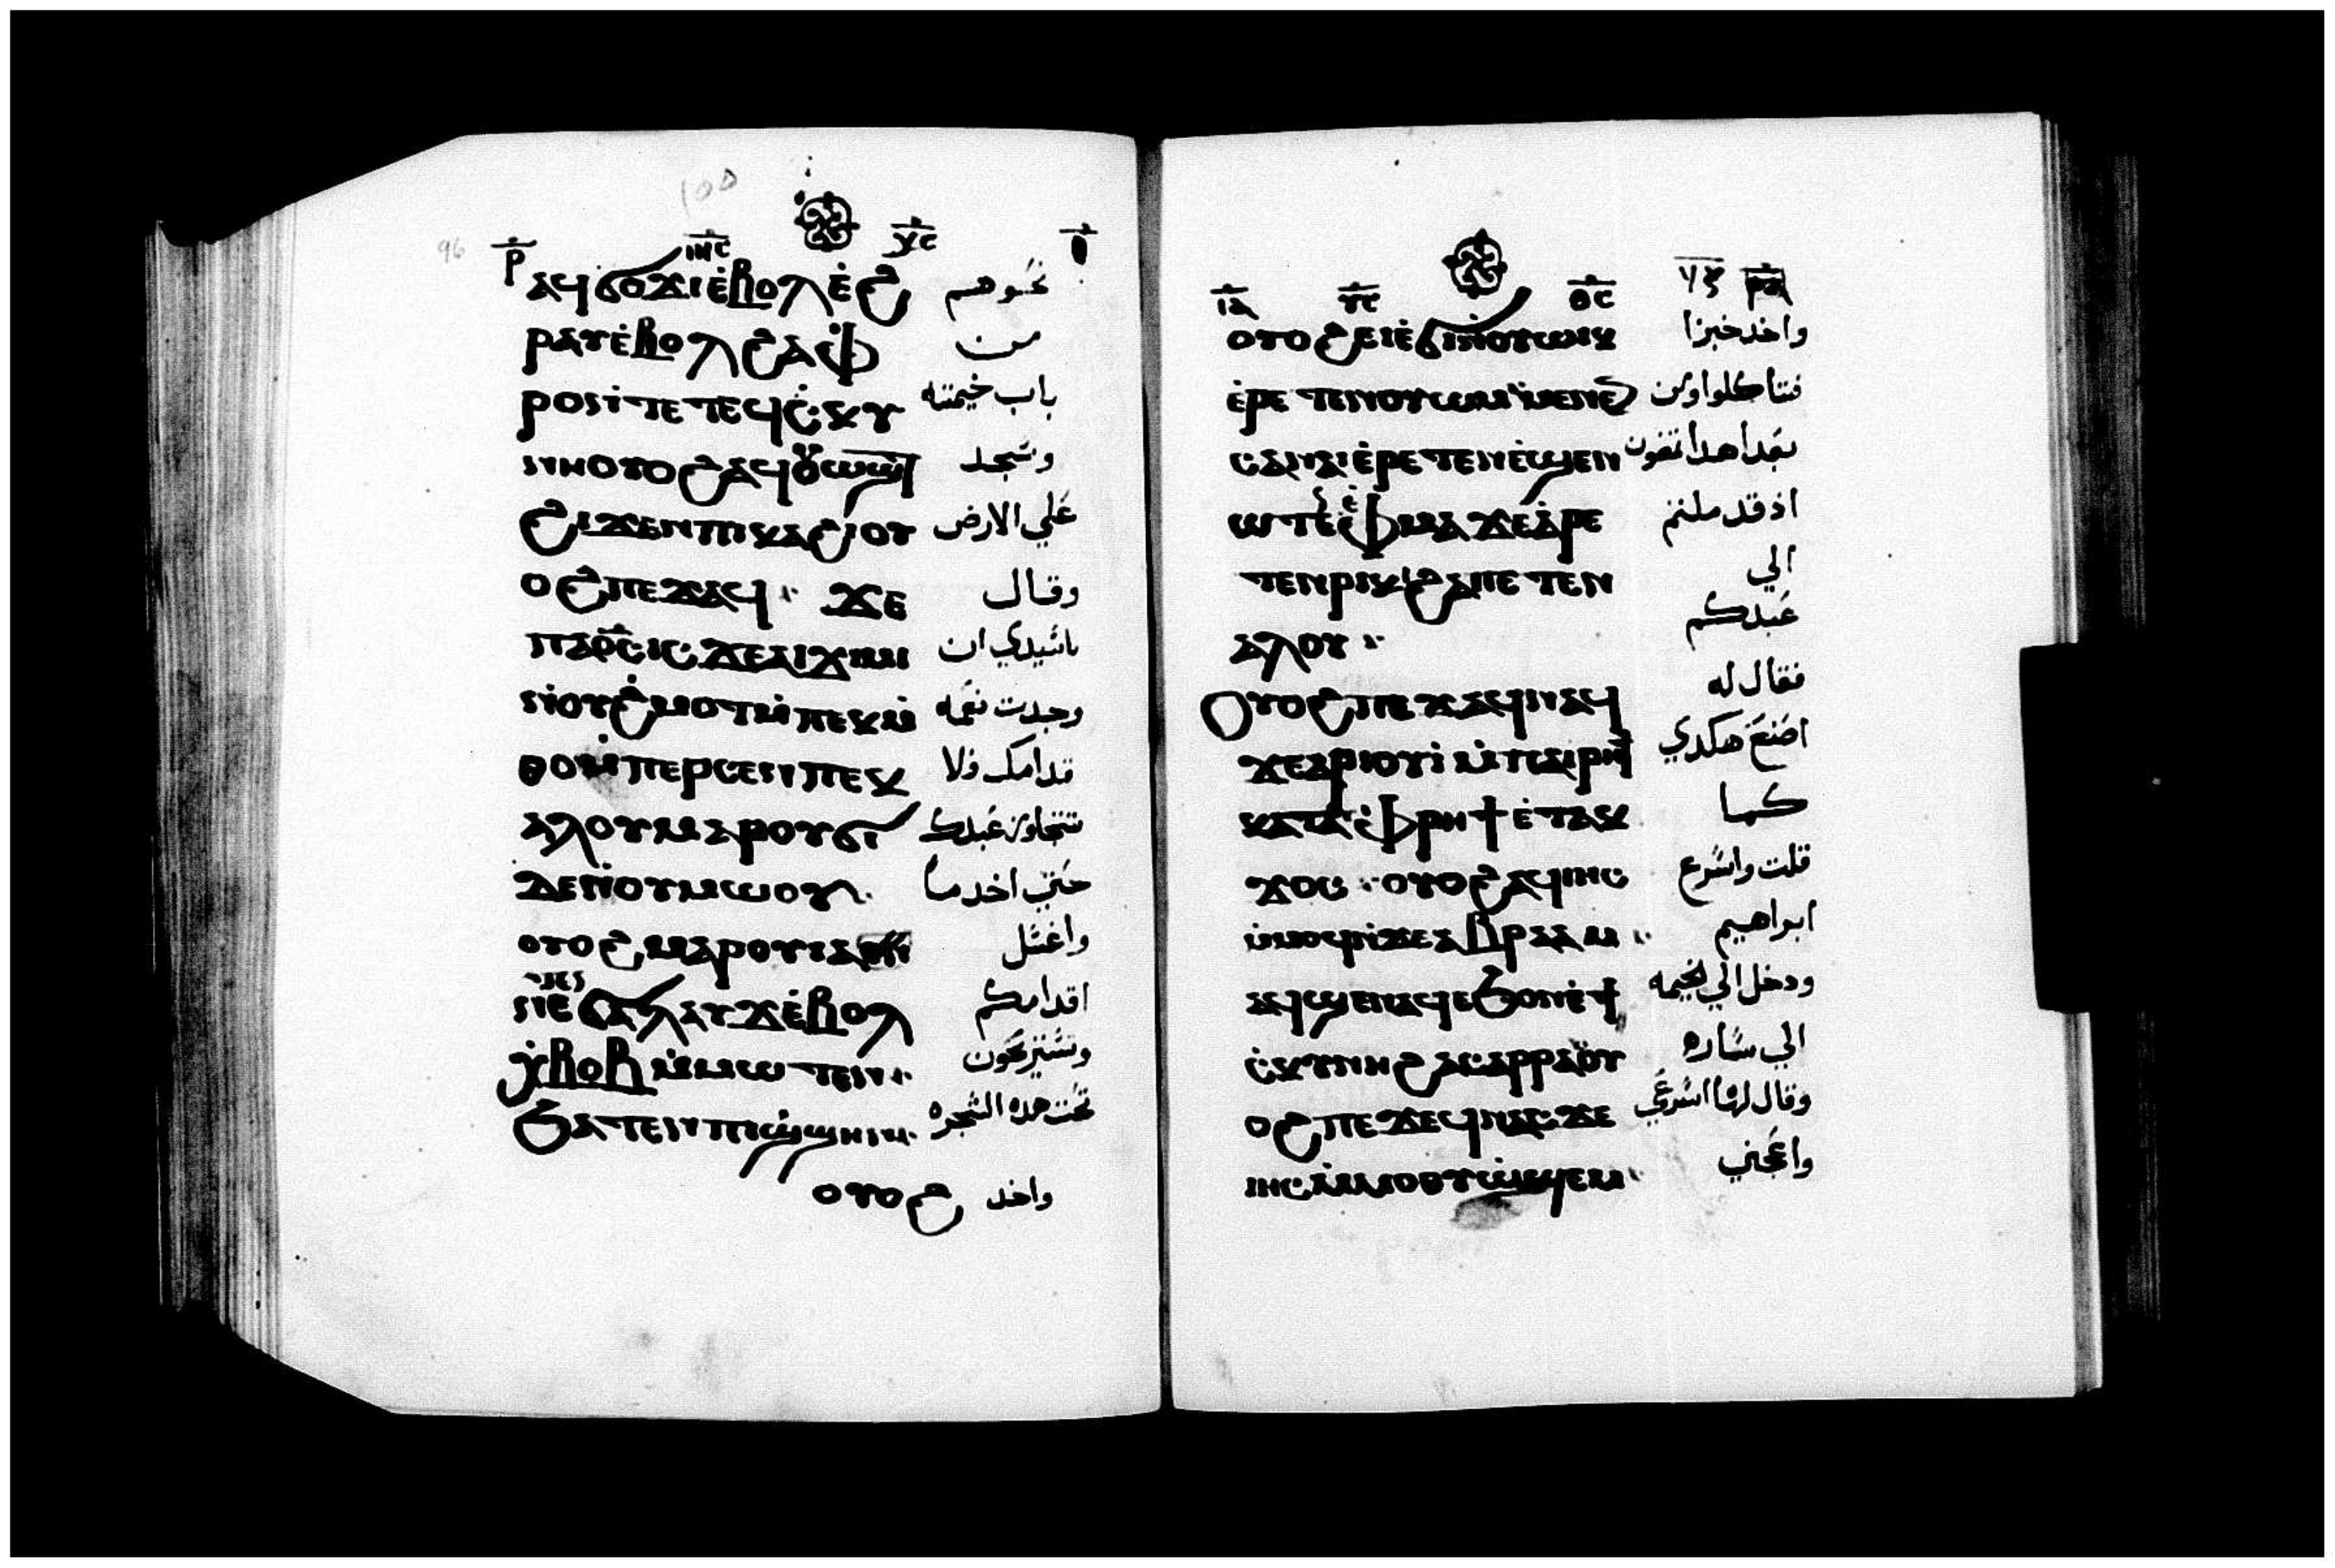 100
96
ⲣ̅ ⲓⲏ̅ⲥ̅ ⲩ̅ⲥ̅ ⲑ̅
ⲁϥϭⲟϫⲓ ⲉ̀ⲃⲟⲗ ⲉ̀ϩ نحوهم
ⲣⲁⲩ ⲉ̀ⲃⲟⲗϩⲁ ⲫ من
ⲣⲟ ⲛ̀ⲧⲉ ⲧⲉϥⲥ̀ⲕⲩ باب خيمته
ⲛⲏ ⲟⲩⲟϩ ⲁϥⲟⲩⲱϣⲧ وسجد
ϩⲓϫⲉⲛ ⲡⲓⲕⲁϩⲓ ⲟⲩ علي الارض
ⲟϩ ⲡⲉϫⲁϥ ϫⲉ وقال
ⲡⲁϭⲥ̅ⲓⲥ ϫⲉ ⲁⲓϫⲓⲙⲓ ياسيدي ان
ⲛ̀ⲟⲩϩ̀ⲙⲟⲧ ⲙ̀ⲡⲉⲕⲙ̀ وجدت نعمه
ⲑⲟ ⲙ̀ⲡⲉⲣⲥⲉⲛ ⲡⲉⲕ قدامك فلا
ⲁⲗⲟⲩ ⲙⲁⲣⲟⲩϭⲓ تتجاوز عبدك
ϫⲉⲛ̀ⲟⲩⲙⲱⲟⲩ حتي اخد ما
ⲟⲩⲟϩ ⲙⲁⲣⲟⲩⲓⲁ واغسل
ⲛⲉϭⲁⲗⲁⲩϫ ⲉ̀ⲃⲟⲗ اقدامكم
ⲭ̀ⲃⲟⲃ ⲙ̀ⲙⲱⲧⲉⲛ وتستريحون
ϧⲁⲧⲉⲛ ⲡⲓϣ̀ϣⲏⲛ تحت هده الشجره
ⲟⲩⲟϩ واخد
ⲓ̅ⲁ̅ ⲩ̅ⲥ̅ ⲑ̅ⲥ̅ ⲣ̅ⲁ̅
ⲟⲩⲟϩ ⲉⲓⲉ̀ϭⲓ ⲛ̀ⲟⲩⲱⲓⲕ واخد خبزا
ⲉ̀ⲣⲉⲧⲉⲛⲟⲩⲱⲙ ⲙ̀ⲙⲉⲛⲉⲛ فتاكلوا ومن
ⲥⲁ ⲛⲁⲓ ⲉ̀ⲣⲉⲧⲉⲛⲉ̀ϣⲉⲛ بعد هدا تمضون
ⲱⲧⲉⲛ ⲉ̀ⲫⲙⲁ ϫⲉ ⲁ̀ⲣⲉ اذ قد ملتم
ⲧⲉⲛⲣⲓⲕⲓ ϩⲁ ⲡⲉⲧⲉⲛ الي
ⲁⲗⲟⲩ عبدكم
ⲟⲩⲟϩ ⲡⲉϫⲁϥ ⲛⲁϥ فقال له
ϫⲉ ⲁⲣⲓⲟⲩⲓ̀ ⲙ̀ⲡⲁⲓⲣⲏϯ اصنع هكدي
ⲕⲁⲧⲁ ⲫ̀ⲣⲏϯ ⲉ̀ⲧⲁⲕ كما
ϫⲟⲥ ⲟⲩⲟϩ ⲁϥⲓⲏⲥ قلت واسرع
ⲙ̀ⲙⲟϥ ⲛ̀ϫⲉ ⲁⲃⲣⲁⲁⲙ ابراهيم
ⲁϥϣⲉⲛⲁϥ ⲉϧⲟⲩⲛ ⲉ̀ϯ ودخل الي الخيمه
ⲥ̀ⲕⲩⲛⲏ ϩⲁ ⲥⲁⲣⲣⲁ ⲟⲩ الي ساره
ⲟϩ ⲡⲉϫⲉϥ ⲛⲁⲥ ϫⲉ وقال لها اسرعي
ⲓⲏⲥ ⲙ̀ⲙⲟ ⲟⲩⲱϣⲉⲙ واعجني